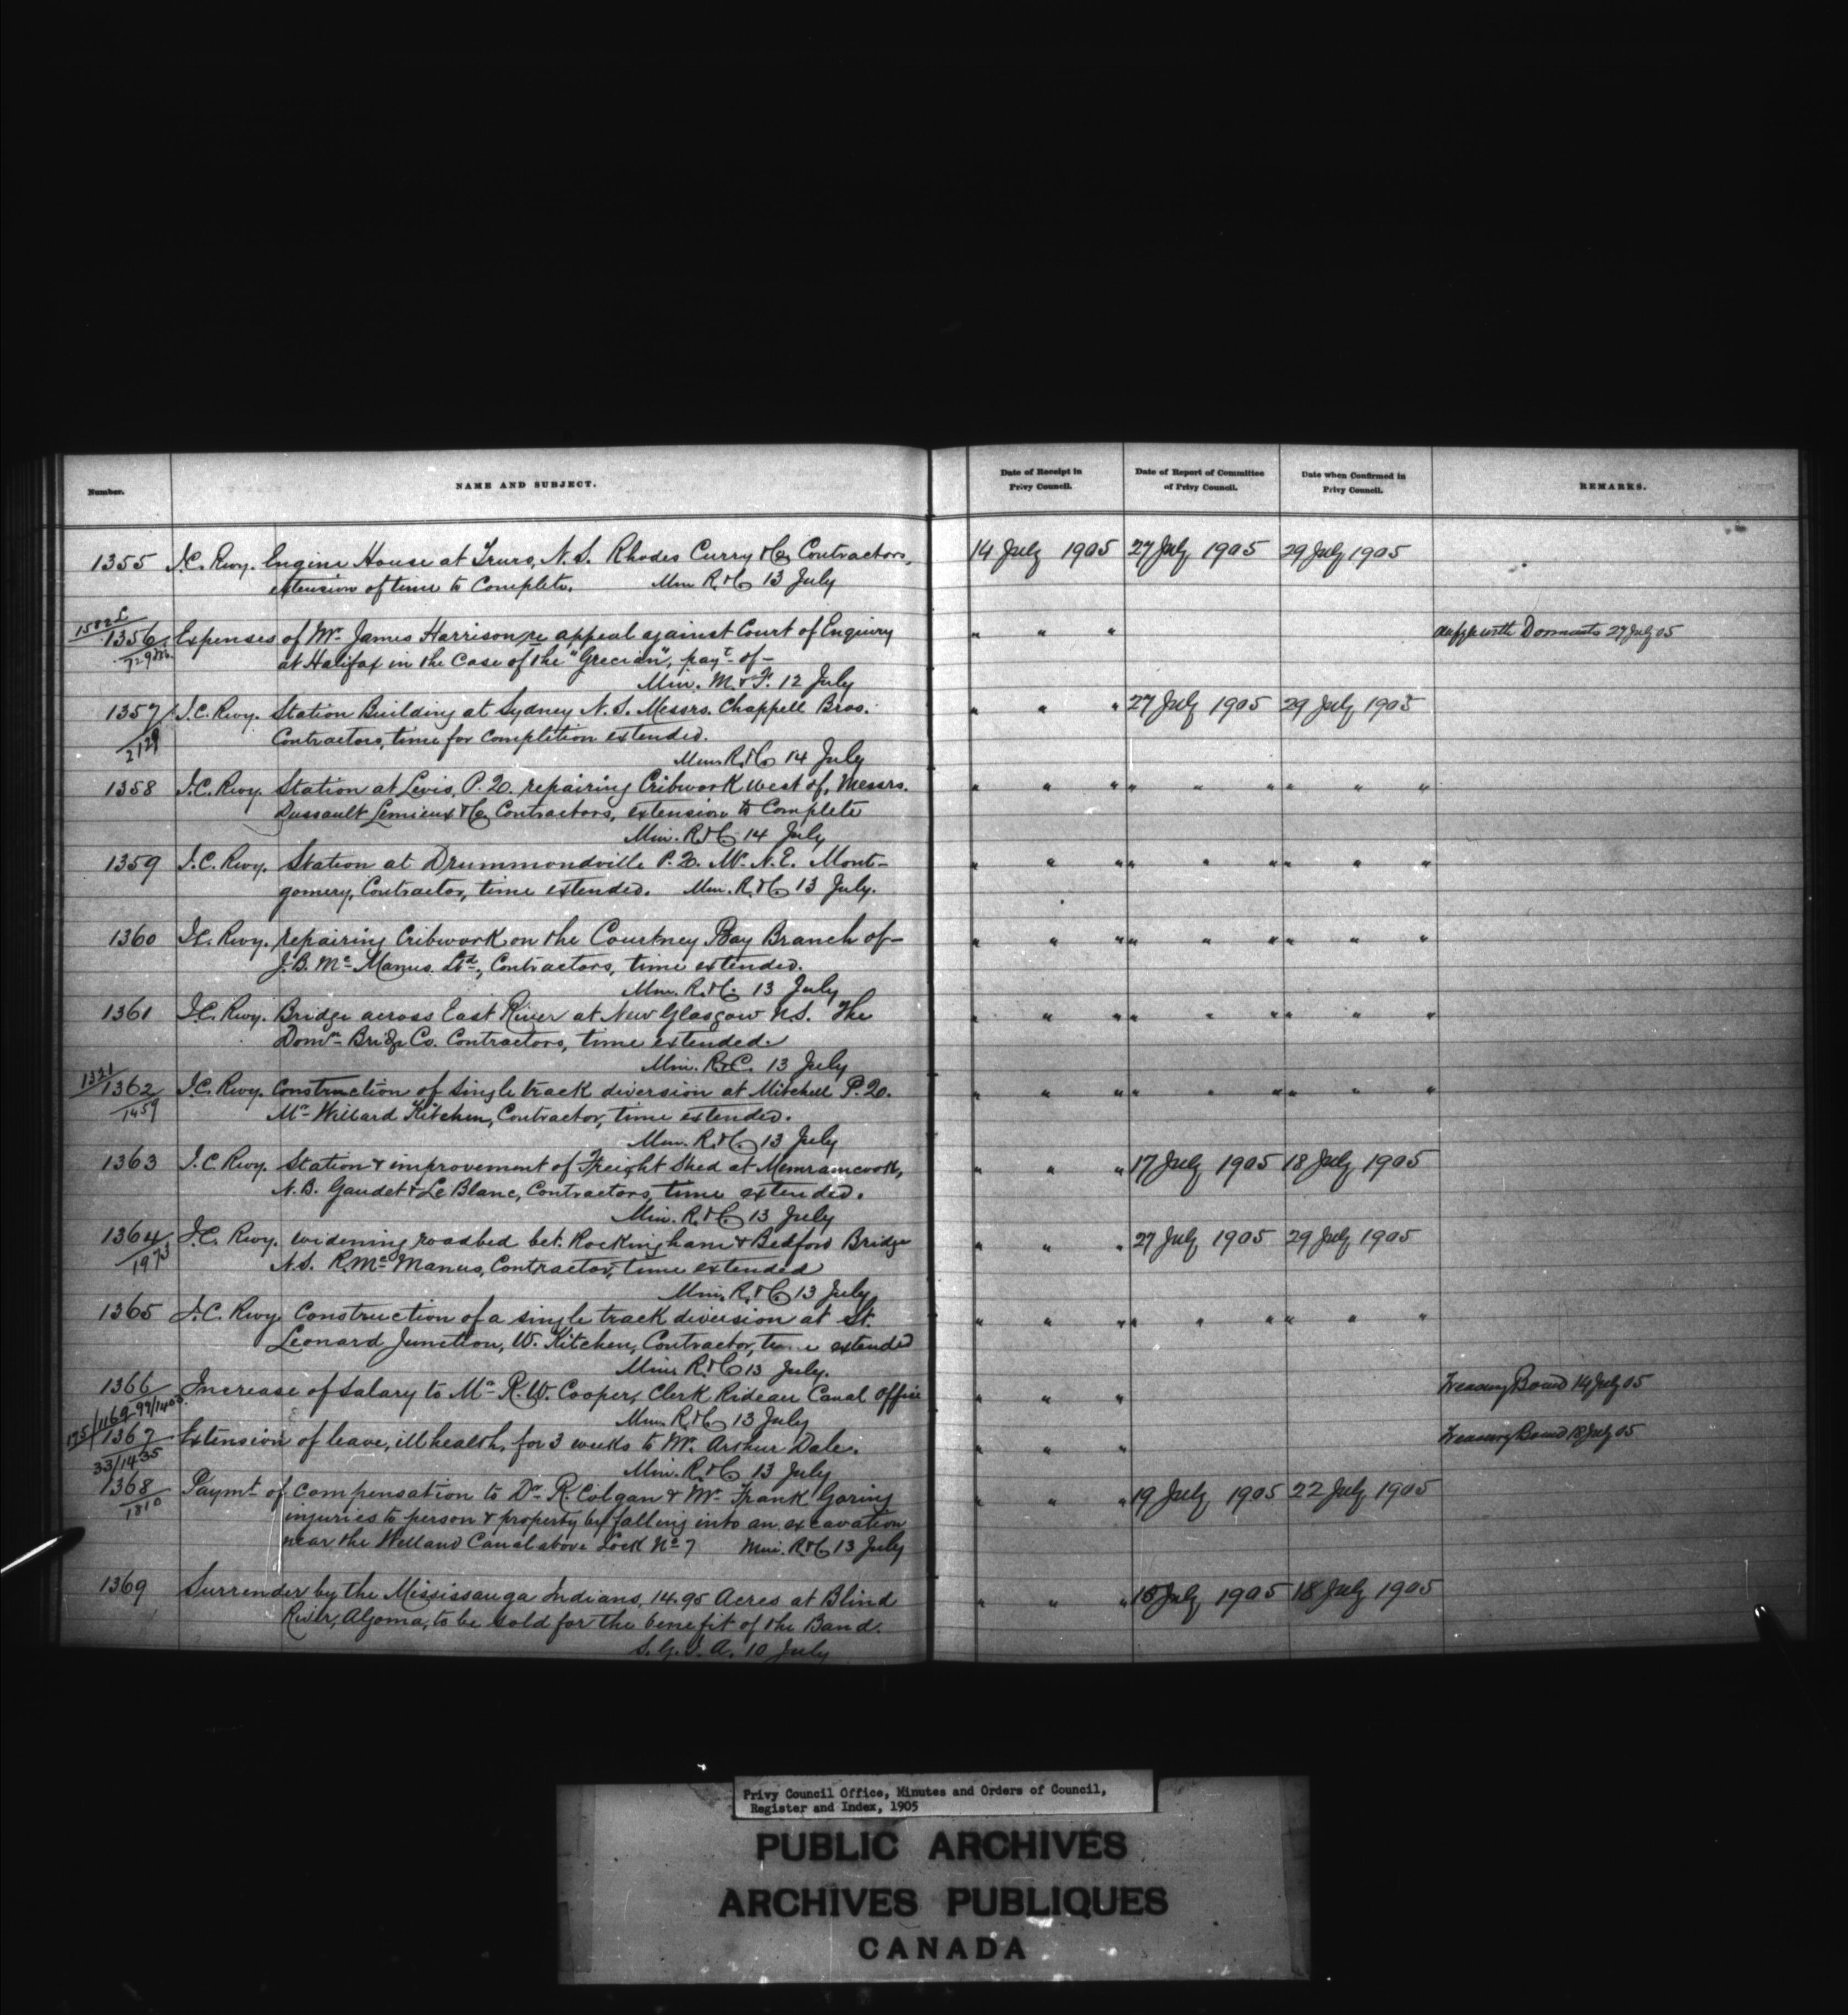 Number.
NAME AND SUBJECT.
Date of Receipt in Privy Council.
Date of Report of Committee of Privy Council.
Date when Confirmed in Privy Council.
REMARKS.
1355 I.C. Rwy. Engine House at Truro, N.S. Rhodes Curry & Co Contractors, 14 July 1905 27 July 1905 29 July 1905
extension of time to Complete. Min R. & C 13 July
1356 Expenses of Mr. James Harrison re appeal against Court of Enquiry " " " 27 July 05
at Halifax in the Case of the "Grecian", payt. of—
Min. M. & F. 12 July
1357 I.C. Rwy. Station Building at Sydney N.S. Messrs. Chappell Bros. " " " 27 July 1905 29 July 1905
2129 Contractors, time for Completion extended.
Min R. & C 14 July
1358 I.C. Rwy. Station at Levis, P.Q. repairing Cribwork west of, Messrs. " " " " " " " " "
Dussault Lemieux & Co Contractors, extension to Complete
Min. R & C 14 July
1359 I.C. Rwy. Station at Drummondville P.Q. Mr. N.E. Mont- " " " " " " " " "
gomery, Contractor, time extended. Min. R. & C 13 July.
1360 I.C. Rwy. repairing Cribwork on the Courtney Bay Branch of— " " " " " " " " "
J.B. Mc Manus Ltd., Contractors, time extended.
Min. R. & C. 13 July
1361 I.C. Rwy. Bridge across East River at New Glasgow N.S. The " " " " " " " " "
Domn. Bridge Co. Contractors, time extended.
Min. R. & C. 13 July
1321
1362 I.C. Rwy. Construction of single track diversion at Mitchell P.Q. " " " " " " " " "
1459 Mr. Willard Kitchen, Contractor, time extended.
Min. R. & C. 13 July
1363 I.C. Rwy. Station & improvement of Freight Shed at Memramcook, " " " 17 July 1905 18 July 1905
N.B. Gaudet & Le Blanc, Contractors, time extended.
Min. R. & C 13 July
1364 I.C. Rwy. widening roadbed bet. Rockingham & Bedford Bridge " " " 27 July 1905 29 July 1905
1973 N.S. R. Mc Manus, Contractor, time extended
Min. R. & C 13 July
1365 I.C. Rwy. Construction of a single track diversion at St. " " " " " " " " "
Leonard Junction, W. Kitchen, Contractor, time extended
Min. R. & C 13 July.
1366 Increase of Salary to Mr. R.W. Cooper, Clerk Rideau Canal Office " " " Treasury Board 14 July 05
Min. R. & C 13 July
1367 Extension of leave, ill health, for 3 weeks to Mr. Arthur Dale. " " " Treasury Board 18 July 05
33/1435 Min. R. & C 13 July
1368 Paymt. of compensation to Dr. R. Colgan & Mr. Frank Goring " " " 19 July 1905 22 July 1905
1810 injuries to person & property by falling into an excavation
near the Welland Canal above Lock No. 7 Min. R & C 13 July
1369 Surrender by the Mississauga Indians, 14.95 Acres at Blind " " " July 1905 18 July 1905
River, Algoma, to be sold for the benefit of the Band.
S.G.I.A. 10 July
Privy Council Office, Minutes and Orders of Council,
Register and Index, 1905
PUBLIC ARCHIVES
ARCHIVES PUBLIQUES
CANADA